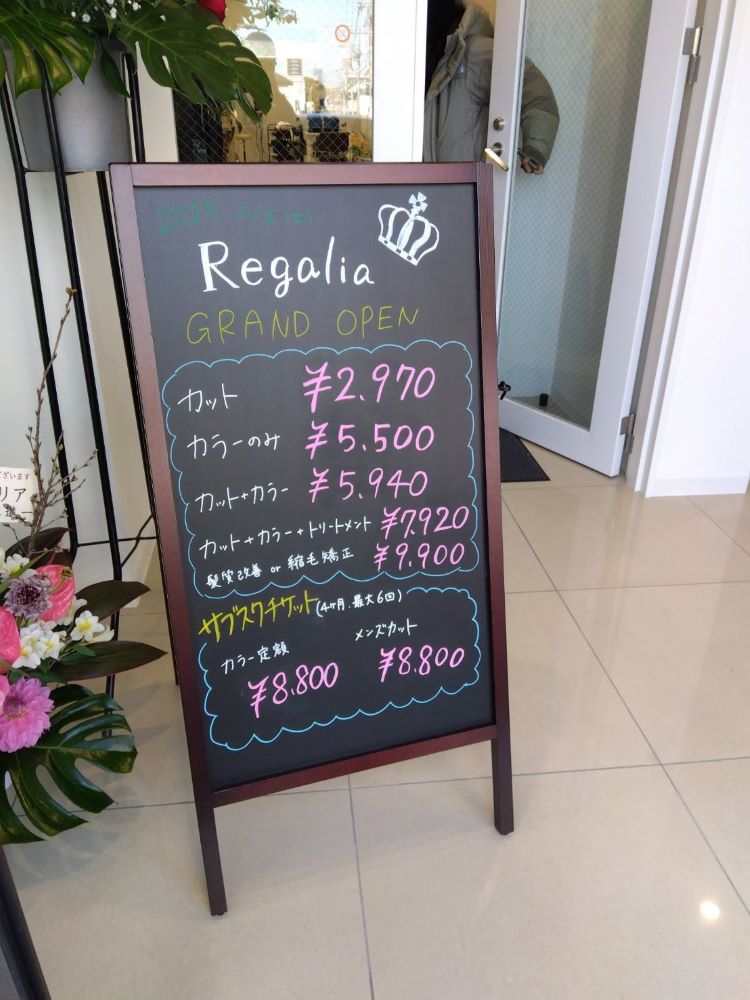 2025 2/8 (土)
Regalia
GRAND OPEN
カット ¥2.970
カラーのみ ¥5.500
カット+カラー ¥5.940
カット+カラー+トリートメント ¥7.920
髪質改善 or 縮毛矯正 ¥9.900
サブスクチケット(4ヶ月.最大6回)
カラー定額 メンズカット
¥8.800 ¥8.800
ございます
リア